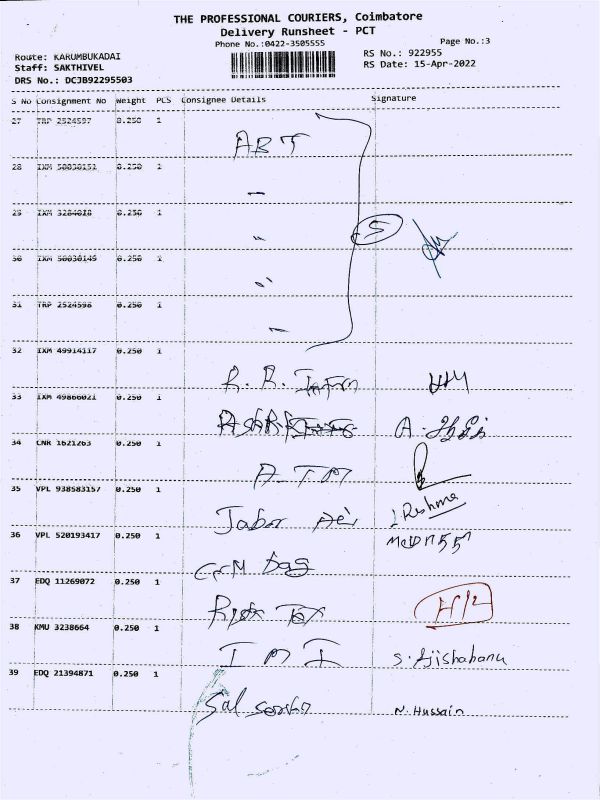 THE PROFESSIONAL COURIERS, Coimbatore
Delivery Runsheet - PCT
Phone No.:0422-3505555
Page No.:3
Route: KARUMBUKADAI
RS No.: 922955
Staff: SAKTHIVEL
RS Date: 15-Apr-2022
DRS No.: DCJB92295503
S No Consignment No Weight PCS Consignee Details Signature
27 TRP 2524597 0.250 1
ABT
28 IXM 50030151 0.250 1
29 IXM 3284028 0.250 1
5
30 IXM 50030149 0.250 1
31 TRP 2524598 0.250 1
32 IXM 49914117 0.250 1
R. R.
33 IXM 49866021 0.250 1
A.
34 CNR 1621263 0.250 1
A-TM
35 VPL 938583157 0.250 1
Jabar
Reshma
36 VPL 520193417 0.250 1
37 EDQ 11269072 0.250 1
38 KMU 3238664 0.250 1
S. Ajishabanu
39 EDQ 21394871 0.250 1
Sal
N. Hussain